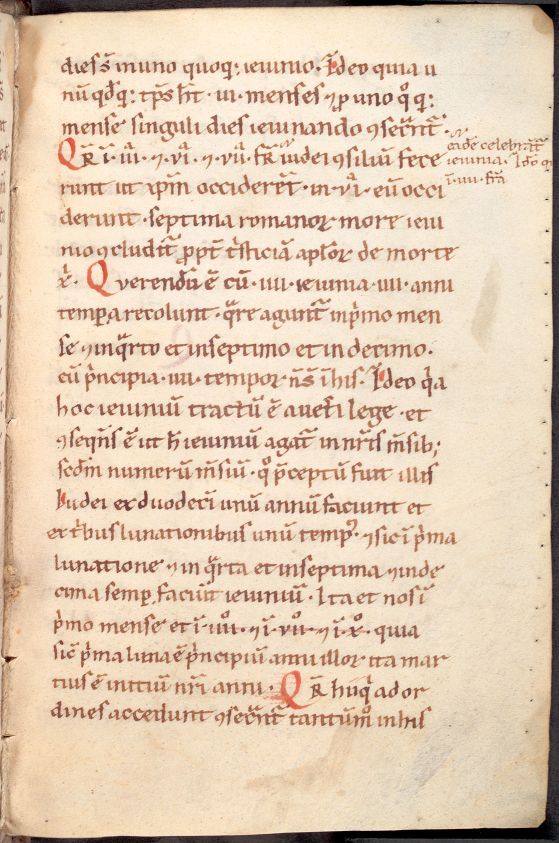 dies s̄ in uno quoq; ieiunio. Ideo quia u
nū qdq; tp̄s ht̄ · iii · menses ⁊ ꝓ uno qͦq;
mense singuli dies ieiunando ↄsecᷓnt̄.
Qr̄ ī · iiii · ⁊ · vi · ⁊ · vii · fr̄ iudei ↄsiliū fece
runt ut xp̄m occiderēt · in · vi · eū occi
derunt · septima romanoꝝ more ieiu
nio ↄcludit̄ ꝓpt̄ tͥsticiā aptōꝝ de morte
xͥ. Querendū ē cū · iiii · ieiunia · iiii · anni
tempora recolunt · qͣre agunt̄ in pͥmo men
se ⁊ in qͣrto et in septimo et in decimo ·
cū pͥncipia · iiii · tempoꝝ n̄ s̄ ī his · Ideo qͥa
hoc ieiuniū tractū ē a uet̄i lege · et
ↄseqn̄s ē ut h̄ ieiuniū agat̄ in nr̄is m̄sib;
scdm̄ numerū m̄siū · qͦ p̄ceptū fuit illis
Iudei ex duodecī unū annū faciunt et
ex tͥbus lunationibus unū temp᷒ · ⁊ sic ī pͥma
lunatione ⁊ in qͣrta et in septima ⁊ in de
cima semꝑ faciūt ieiuniū · Ita et nos ī
pͥmo mense et ī · iiiiͦ · ⁊ ī · viiͦ · ⁊ ī · xͦ · quia
sic̄ pͥma luna ē pͥncipiū anni illoꝝ ita mar
tius ē initiū nr̄i anni · Qr̄ hi qͥ ad or
dines accedunt ↄsecᷓnt̄ tantūmͦ in his
eadē celebrat̄
ieiunia. Ideo q
ī · iiii · fr̄a